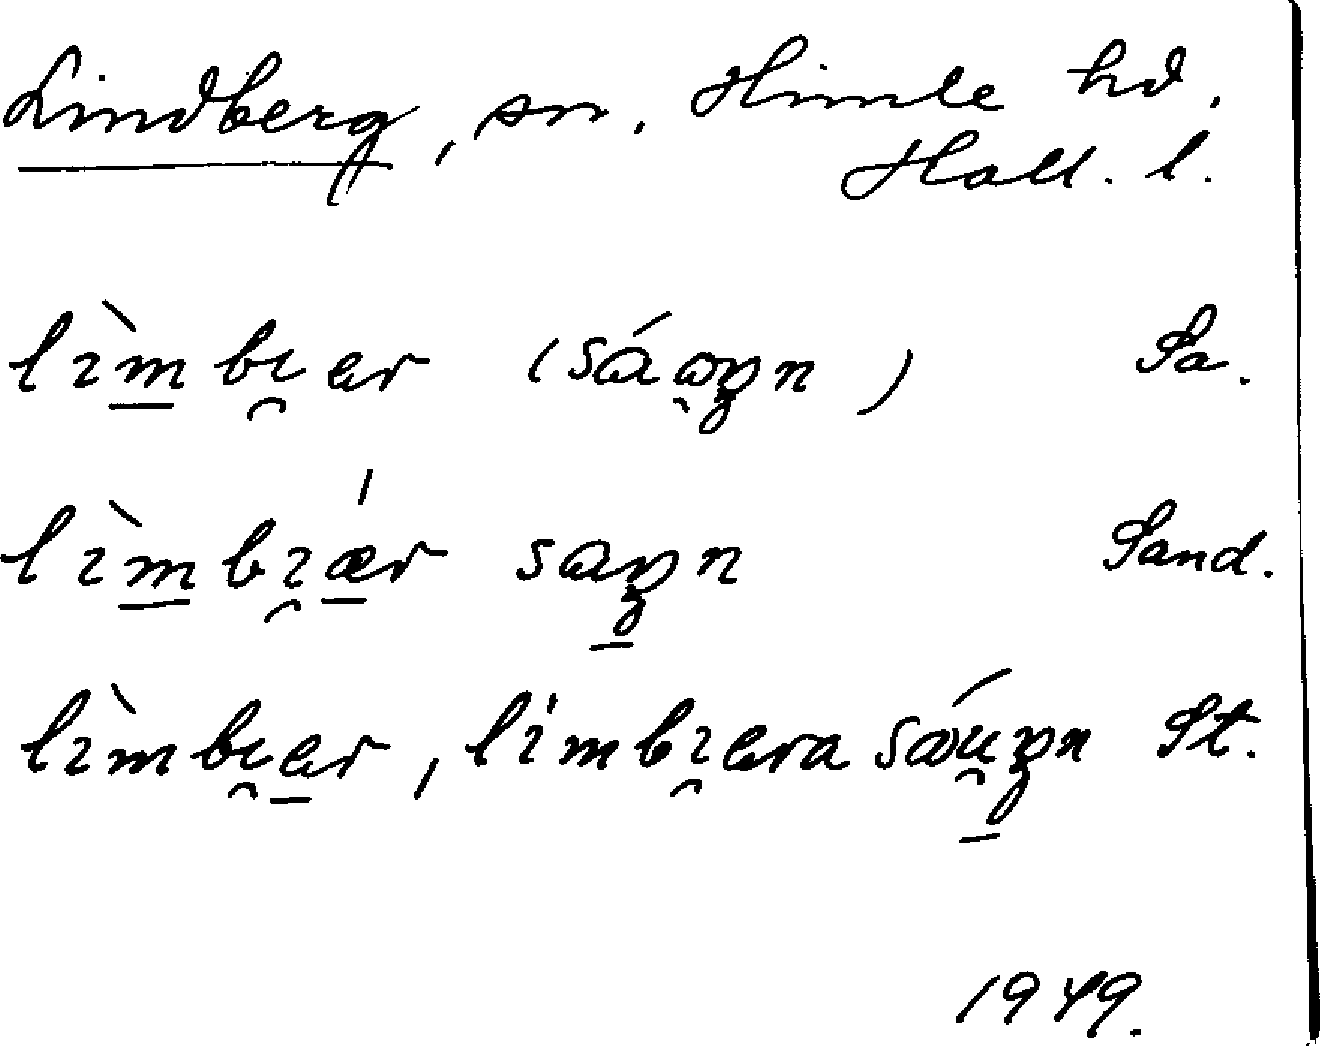 Lindberg, sn. Himle hd.
Hall. l.
lìmbı̯ær (sáω̯ŋn) Sa.
lìmbı̯ǽr saŋn Sand.
lìmbı̯ær, límbı̯æra sáu̯ŋn St.
1949.